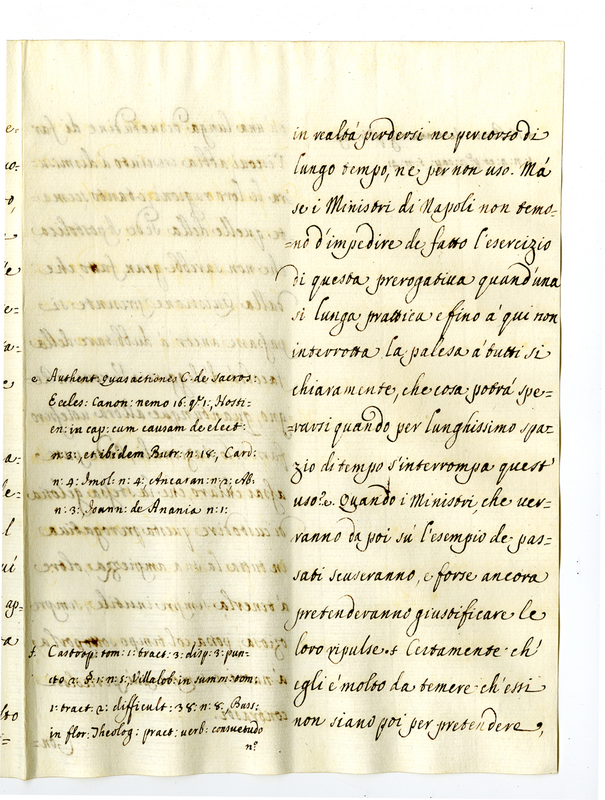 in realtá perdersi ne per corso di
lungo tempo, ne per non uso. Má
se i Ministri di Napoli non temo=
=no d'impedire de fatto l'esercizio
di questa prerogativa quand'una
si lunga prattica e fino á qui non
interrotta la palesa á tutti si
chiaramente, che cosa potrá spe=
=rarsi quando per lunghissimo spa=
zio di tempo s'interrompa quest'
uso? e. Quando i Ministri, che ver=
ranno da poi sú l'esempio de pas=
sati scuseranno, e forse ancora
pretenderanno giustificare le
loro ripulse. f Certamente ch'
egli é molto da temere ch'essi
non siano poi per pretendere,
e Authent. quas actiones C. de sacros:
Eccles: Canon: nemo 16. q. 1:, Hosti=
en: in cap: cum causam de elect:
n: 3:, et ibidem Butr: n: 18:, Card:
n: 4: Imol: n: 4:, Ancaran: n: 2: Ab:
n: 3:, Joann: de Anania n: 1:
f. Castrop: tom: 1: tract: 3: disp: 3: pun=
cto 2: § 1: n: 5: Villalob: in summ: tom:
1: tract: 2: difficult: 38: n: 8: Bass:
in flor: Theolog: pract: verb: consuetudo
n.º